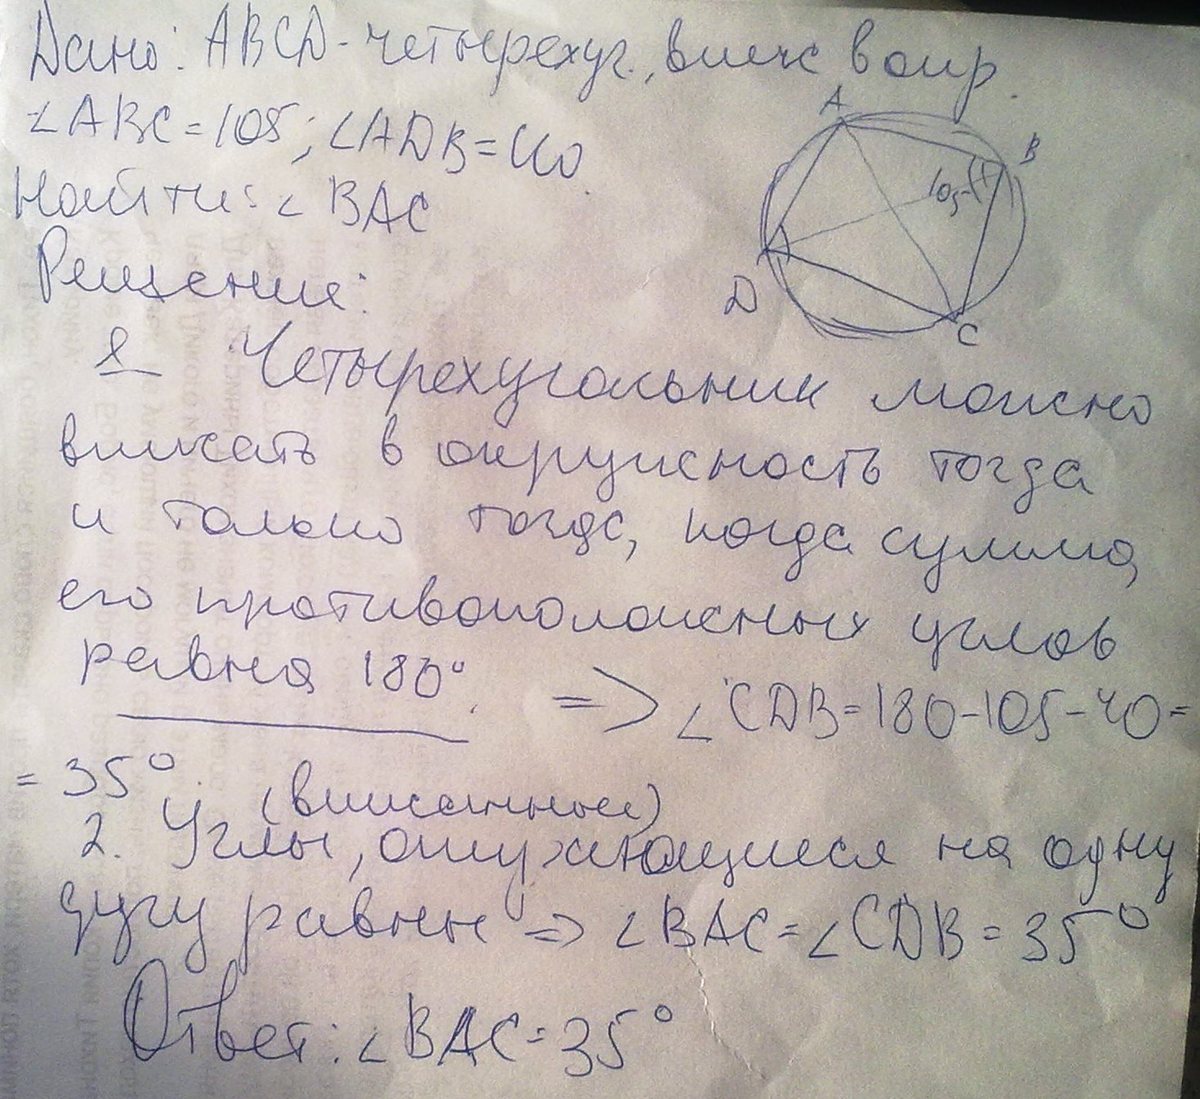 Дано: ABCD - четырехуг., впис в окр.
∠ABC = 105; ∠ADB = 40.
Найти: ∠BAC
A
B
105
D
C
Решение:
1 Четырехугольник можно
вписать в окружность тогда
и только тогда, когда сумма
его противоположных углов
равна 180°. => ∠CDB = 180 - 105 - 40 =
= 35°
(вписанные)
2. Углы, опирающиеся на одну
дугу равны => ∠BAC = ∠CDB = 35°
Ответ: ∠BAC = 35°